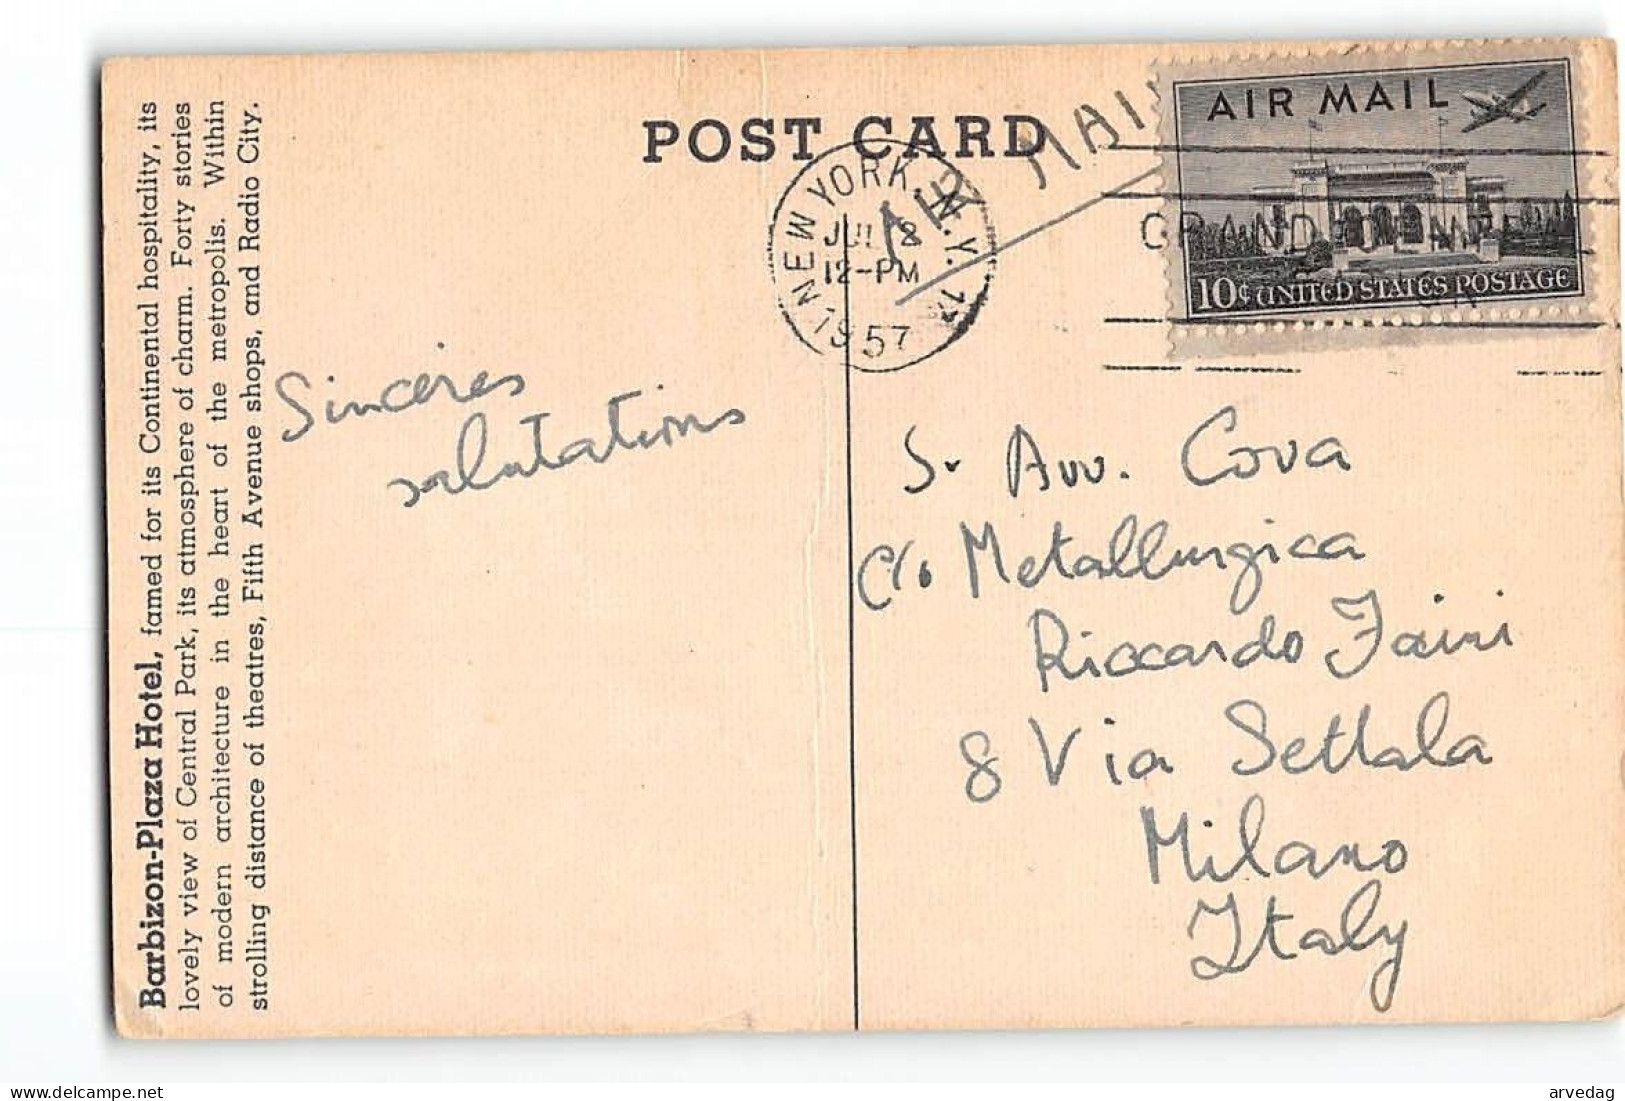 POST CARD
AIR MAIL
NEW YORK, N.Y.
JUL 2
12-PM
1957
AIR MAIL
10¢ UNITED STATES POSTAGE
GRAND CENTRAL
Barbizon-Plaza Hotel, famed for its Continental hospitality, its
lovely view of Central Park, its atmosphere of charm. Forty stories
of modern architecture in the heart of the metropolis. Within
strolling distance of theatres, Fifth Avenue shops, and Radio City.
Sinceres
salutations
S. Avv. Cova
c/o Metallurgica
Riccardo Faini
8 Via Settala
Milano
Italy
delcampe.net
arvedag